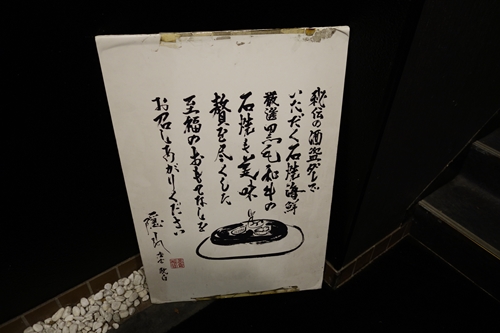 秘伝の酒盗ダレで
いただく石焼海鮮
厳選黒毛和牛の
石焼も美味
贅を尽くした
至福のおもてなしを
お召しあがりください